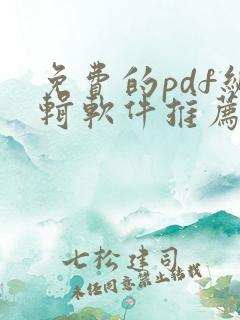 免費的pdf編
輯軟件推薦
七松建司
未任同意禁止转载